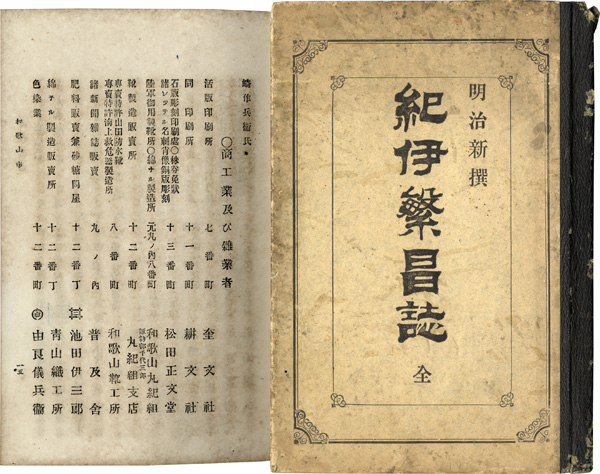 明治新撰
紀伊繁昌誌
全
崎作兵衞氏
〇商工業及び雑業者
活版印刷所 七番町 奎文社
同 印刷所 十一番町 耕文社
石版彫刻印刷處〇株券免狀
諸レツテル名刺肖像銅版彫刻 十三番町 松田正文堂
陸軍御用製靴所〇綿チル製造所 元九ノ內八番町 和歌山丸紀組
靴製造販賣所 十二番町 丸紀組支店
專賣特許山田防水靴
專賣特許海上救危器製造所 八番町 和歌山靴工所
諸新聞雜誌販賣 九ノ內 普及舍
肥料販賣兼砂糖問屋 十二番丁 池田伊三郎
綿チル製造販賣所 十二番丁 靑山織工所
色染業 十二番丁 由良儀兵衞
和歌山市
一五